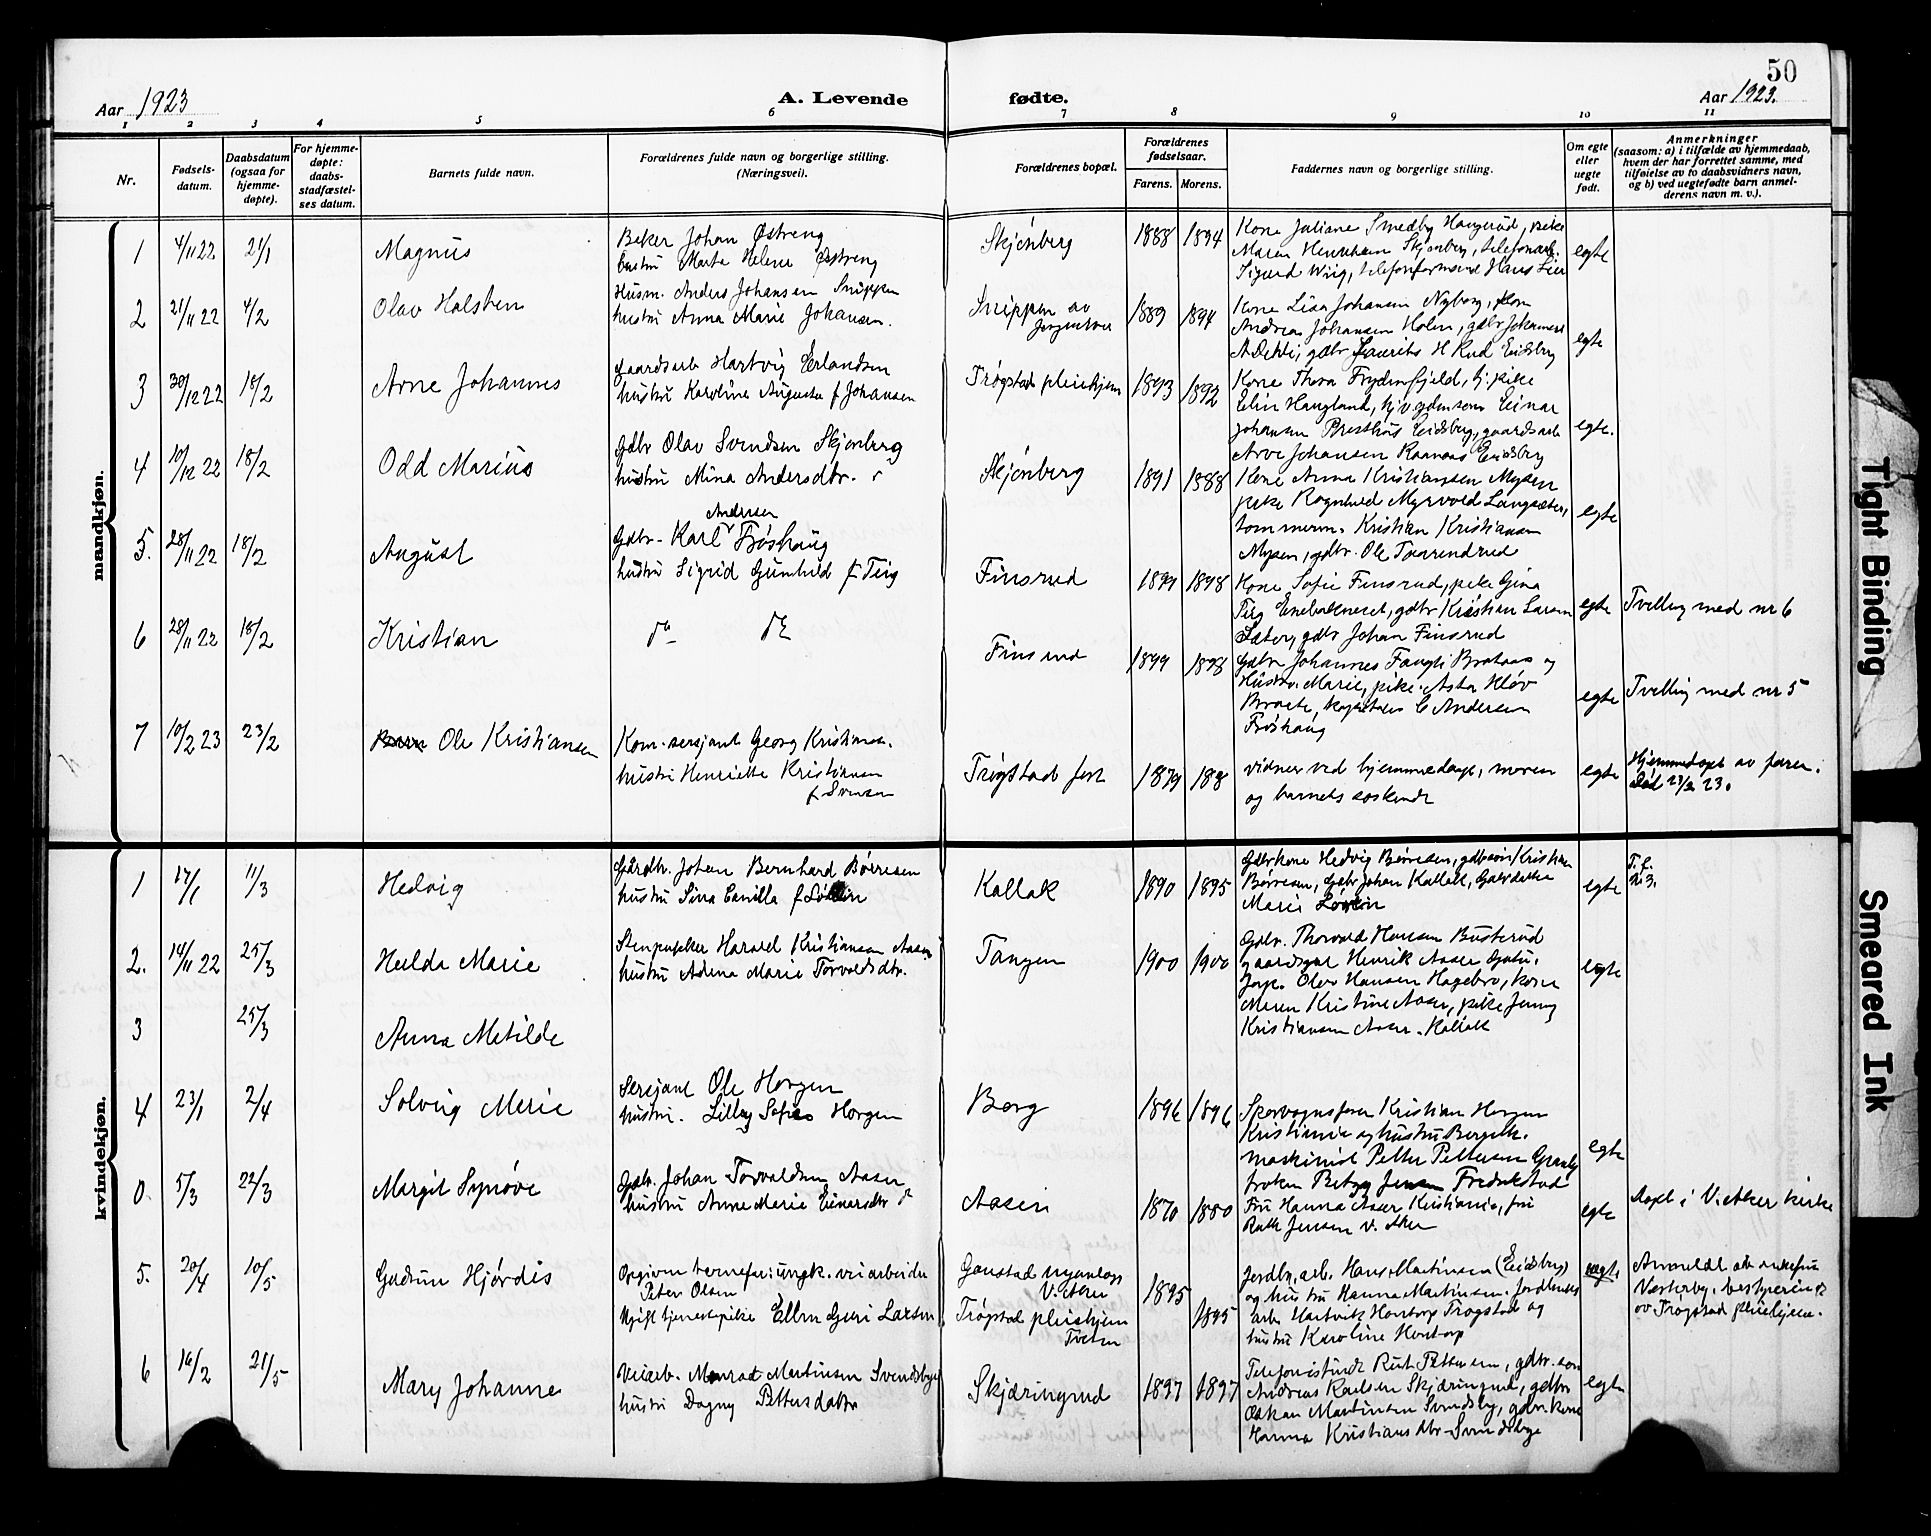 50
Aar 1923
A. Levende
fødte.
Aar 1923.
1 2 3 4 5 6 7 8 9 10 11
Nr.
Fødsels-
datum.
Daabsdatum
(ogsaa for
hjemme-
døpte).
For hjemme-
døpte:
daabs-
stadfæstel-
ses datum.
Barnets fulde navn.
Forældrenes fulde navn og borgerlige stilling.
(Næringsvei).
Forældrenes bopæl.
Forældrenes
fødselsaar.
Farens. Morens.
Faddernes navn og borgerlige stilling.
Om egte
eller
uegte
født.
Anmerkninger
(saasom: a) i tilfælde av hjemmedaab,
hvem der har forrettet samme, med
tilføielse av to daabsvidners navn,
og b) ved uegtefødte barn anmel-
derens navn m. v.).
mandkjøn.
1 4/11 22 21/1 Magnus
Beker Johan Østreng
hustru Marta Helene Østreng
Skjønberg 1888 1894
Kone Juliane Smedby Haugerud, pike
Maren Skjønberg, telefonarb.
Sigurd Wiig, telefonformand Hans Lier
egte
2 21/11 22 4/2 Olav Halsten
Husm. Anders Johansen Snippen
hustru Anna Marie Johansen.
Snippen av
1889 1894
Kone Lisa Johansen Nyborg,
Andreas Johansen Holen, gdbr Johannes
A Dehli, gdbr Laurits H Rud Eidsberg
egte
3 30/12 22 18/2 Arne Johannes
Gaardsarb Hartvig Erlandsen
hustru Karoline Augusta f Johansen
Trøgstad pleiehjem 1893 1892
Kone Thora Frydenfjeld, pike
Elin Haugland, Einar
Johansen Presthus Eidsberg, gaardsarb
Arve Johansen Ramaas Eidsberg
egte.
4 10/12 22 18/2 Odd Marius
Gdbr Olav Svendsen Skjønberg
hustru Mina Andersdtr.
Skjønberg 1891 1888
Kone Anna Kristiansen Mysen
pike Ragnhild Myrvold Langsæter,
tømmerm. Kristian Kristiansen
Mysen, gdbr. Ole Tvarendrud
egte
5. 28/11 22 18/2 August
Andersen
Gdbr. Karl Frøshaug
hustru Sigrid Gunhild f Teig
Finsrud 1899 1898
Kone Sofie Finsrud, pike Gina
Teig Enebakneset, gdbr Kristian Larsen
Sæter, gdbr Johan Finsrud
egte
Tvilling med nr 6
6 28/11 22 18/2 Kristian
do do
Finsrud 1899 1898
Gdbr Johannes Brataas og
Hustru Marie, pike Asta Kløv
Braate, C Andersen
Frøshaug
egte
Tvilling med nr 5
7 10/2 23 23/2 Ole Kristiansen
Kom. sersjant Georg Kristiansen
hustru Henriette Kristiansen
f Svensen
Trøgstad fort 1879 188
vidner ved hjemmedaap, moren
og barnets søskende
egte
Hjemmedøpt av faren.
Død 23/2 23.
kvindekjøn.
1 17/1 11/3 Hedvig
Gdbr. Johan Bernhard Børresen
hustru Sina Camilla f
Kallak 1890 1895
Gdbrkone Hedvig Børresen, gdbrsøn Kristian
Børresen, Gdbr Johan Kallak, Gdbrdatter
Marie
egte
2. 14/11 22 25/3 Hulda Marie
Stenpukker Harald Kristiansen Aasen
hustru Adina Marie Torvaldsdtr.
Tangen 1900 1900
Gdbr. Thorvald Hansen Busterud
gaardsgut Henrik Aaser
Olav Hansen Hagebro, kone
Maren Kristine Aaser, pike Jenny
Kristiansen Aaser. Kallak
egte
3 25/3 Anna Matilde
4 23/1 2/4 Solveig Merie
Sersjant Ole Horgen
hustru. Lilly Sofie Horgen
Borg 1896 1896
Sporvognsfører Kristian Horgen
Kristiania og hustru Borgh.
maskinist Petter Pettersen
frøken Betzy Jensen Fredrikstad
egte
0. 5/3 22/3 Margit Synøve
Gdbr. Johan Torvaldsen Aasen
hustru Anne Marie Einarsdtr
Aasen 1870 1880
Fru Hanna Aaser Kristiania, fru
Ruth Jensen V. Aker
egte
Døpt i V. Aker kirke
5. 20/4 10/5 Gudrun Hjørdis
Opgiven barnefar: ungk. veiarbeider
Peter Olsen
Ugift tjenestepike Ellen Guri Larsen
Gaustad nyanlæg
V. Aker
Trøgstad pleiehjem
Tveten
1895 1895
Jordbr. arb. Hans Martinsen (Eidsberg)
og hustru Hanna Martinsen. Jordbruks
arb Hartvik Hontorp Trøgstad og
hustru Karoline Hontorp
uegte
Anmeldt av enkefru
Vesterby, bestyrerinde
av Trøgstad pleiehjem.
6 16/2 21/5 Mary Johanne
Veiarb. Monrad Martinsen Svendsbye
hustru Dagny Pettersdatter
Skjæringrud 1897 1897
Telefonistinde Rut Pettersen, gdbr. søn
Andreas Karlsen Skjæringrud, gdbr
Oskar Martinsen Svendsby, gdbr. kone
Hanna Kristiansdtr Svendsbye
egte
Tight Binding
Smeared Ink